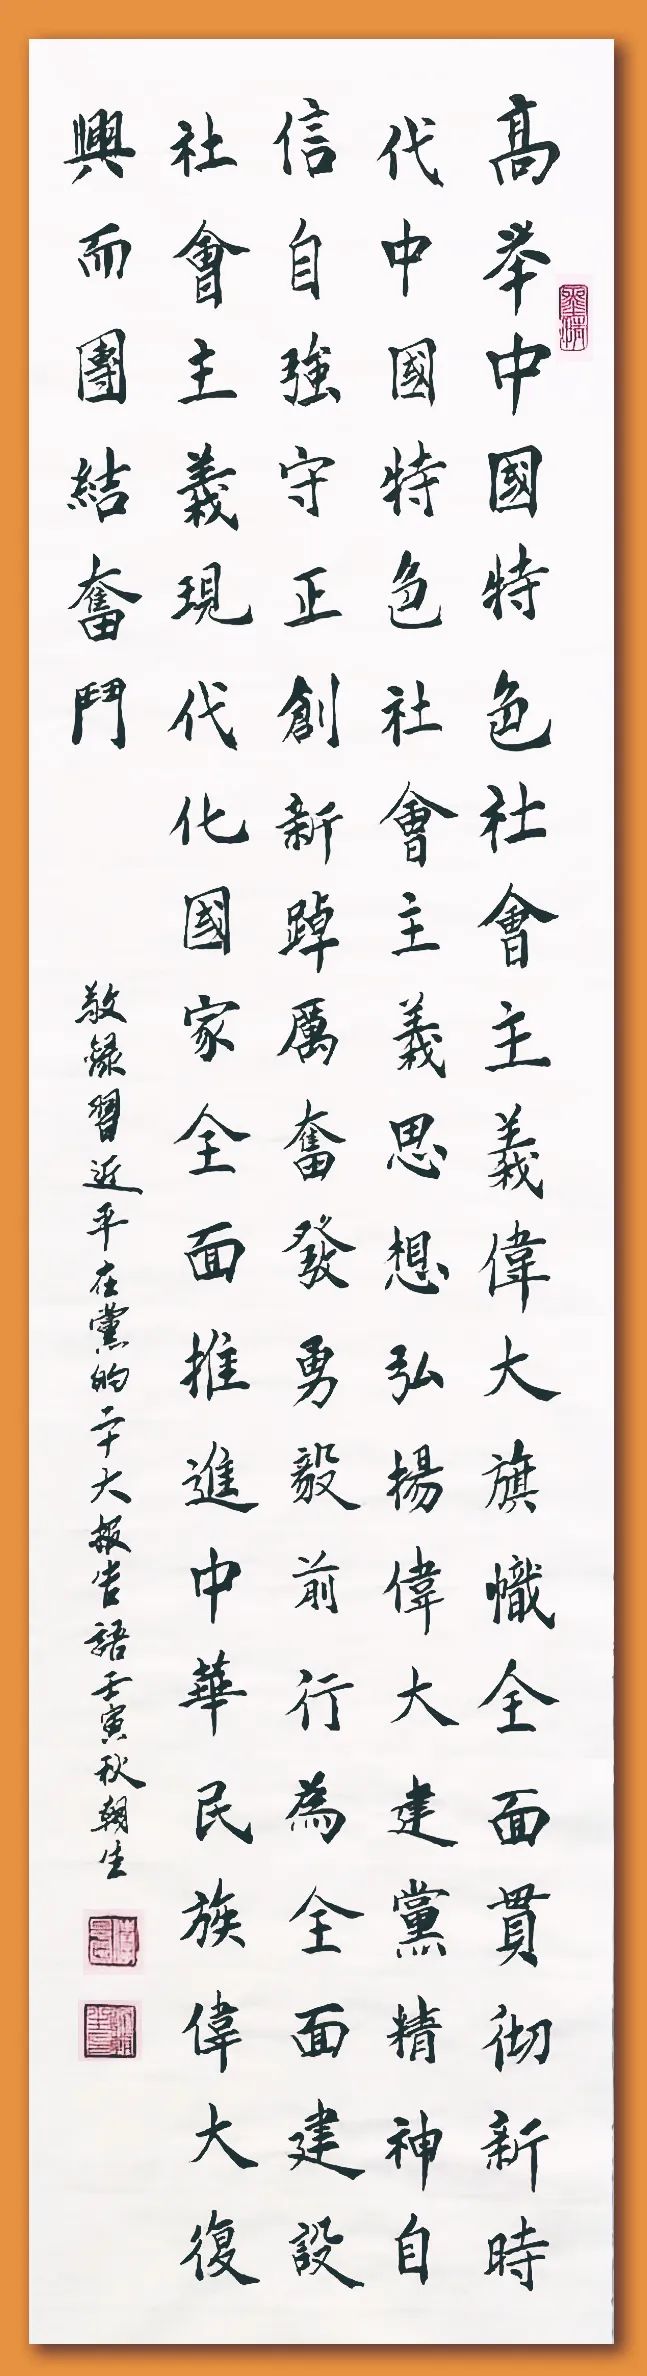 高举中國特色社會主義偉大旗幟全面貫彻新時
代中國特色社會主義思想弘揚偉大建黨精神自
信自強守正創新踔厲奮發勇毅前行為全面建設
社會主義現代化國家全面推進中華民族偉大復
興而團結奮鬥
敬録習近平在黨的二十大報告語壬寅秋朝生